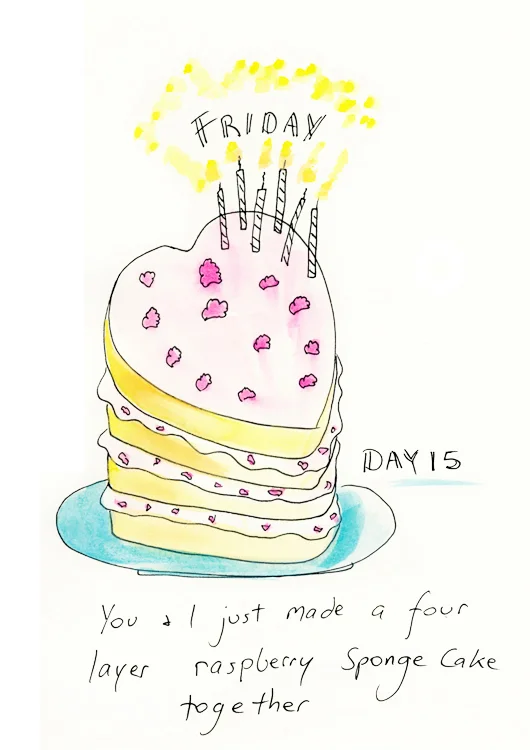 FRIDAY
DAY 15
You & I just made a four
layer raspberry Sponge Cake
together